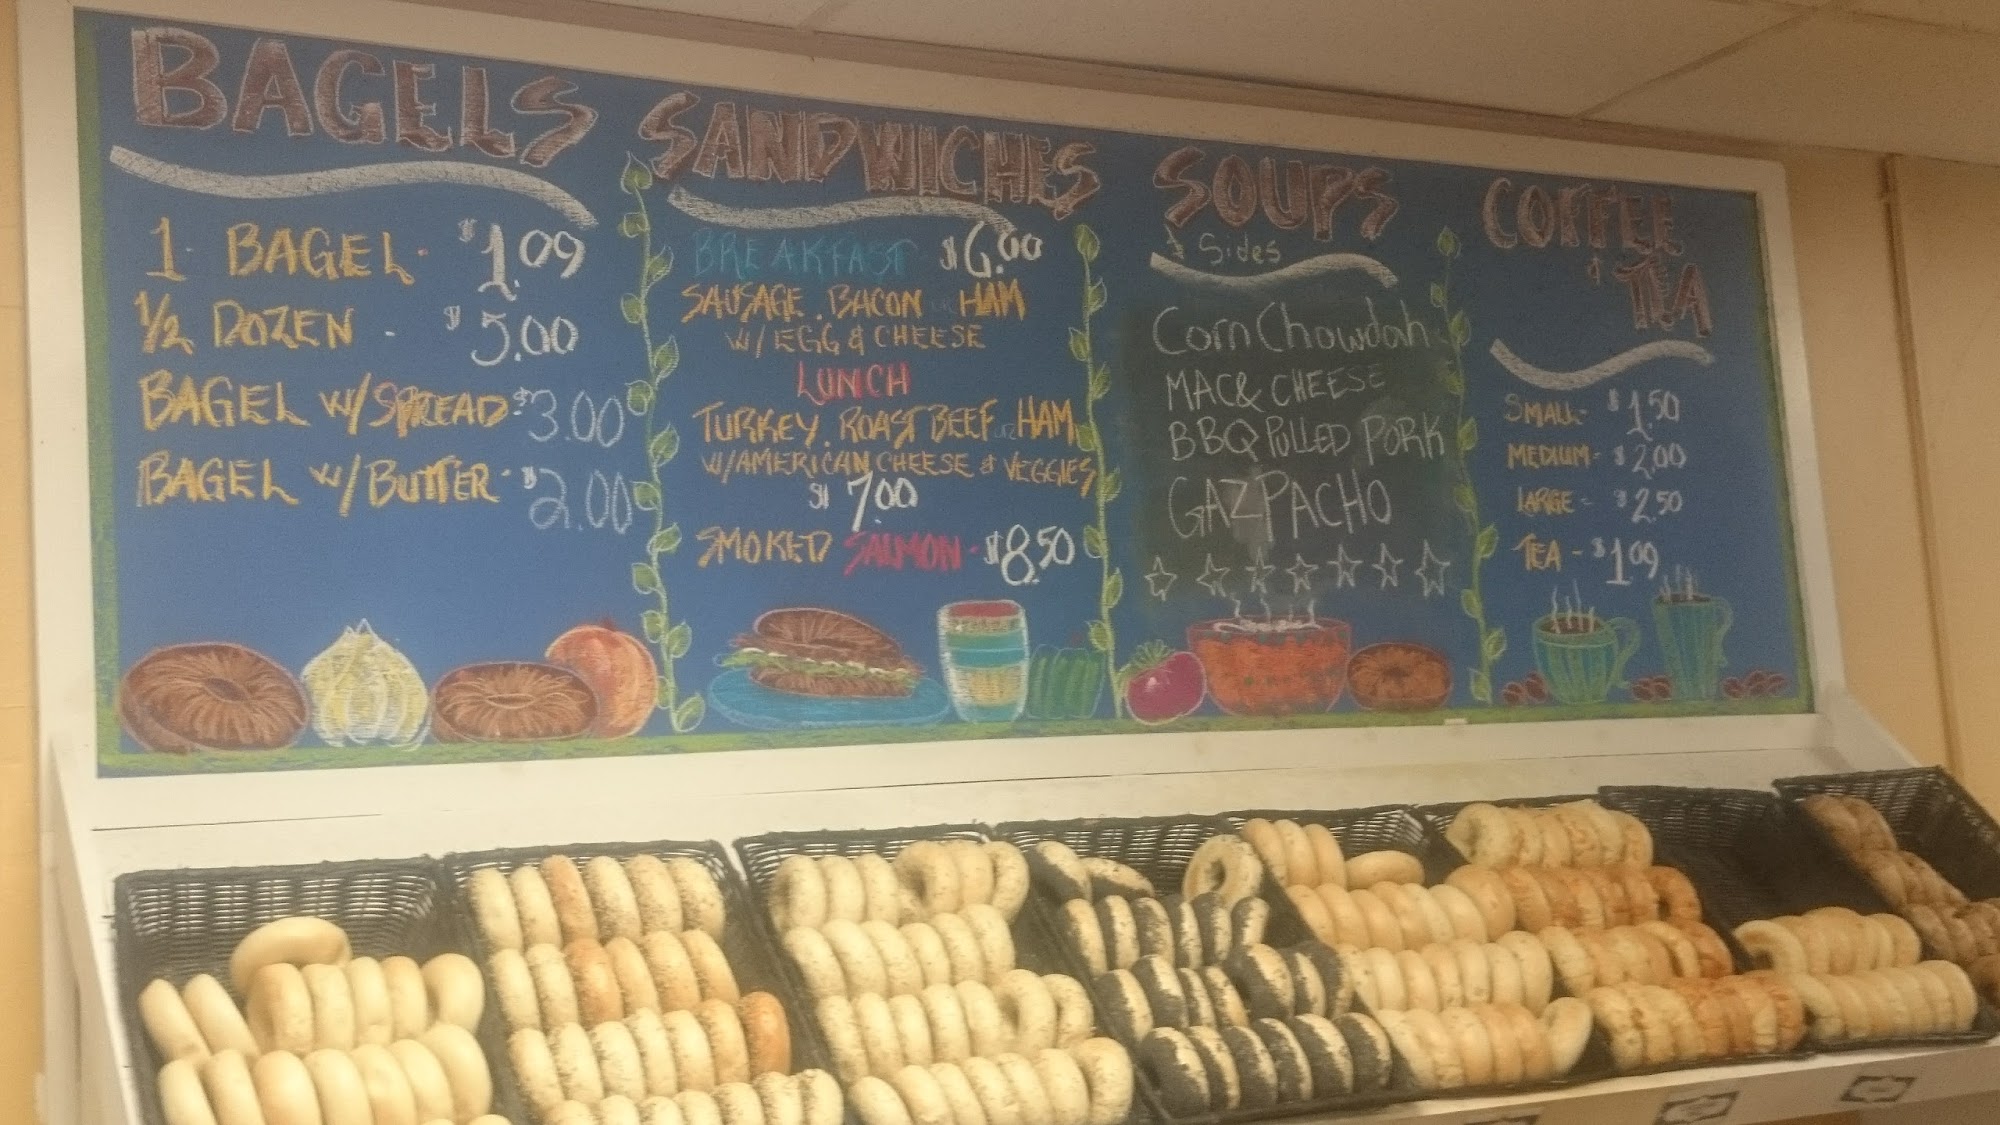 BAGELS
1 BAGEL - $1.09
1/2 DOZEN - $5.00
BAGEL W/SPREAD - $3.00
BAGEL W/BUTTER - $2.00
SANDWICHES
BREAKFAST $6.00
SAUSAGE, BACON OR HAM
W/ EGG & CHEESE
LUNCH
TURKEY, ROAST BEEF OR HAM
W/AMERICAN CHEESE & VEGGIES
$7.00
SMOKED SALMON - $8.50
SOUPS
& Sides
Corn Chowdah
MAC & CHEESE
BBQ PULLED PORK
GAZPACHO
COFFEE
& TEA
SMALL - $1.50
MEDIUM - $2.00
LARGE - $2.50
TEA - $1.09